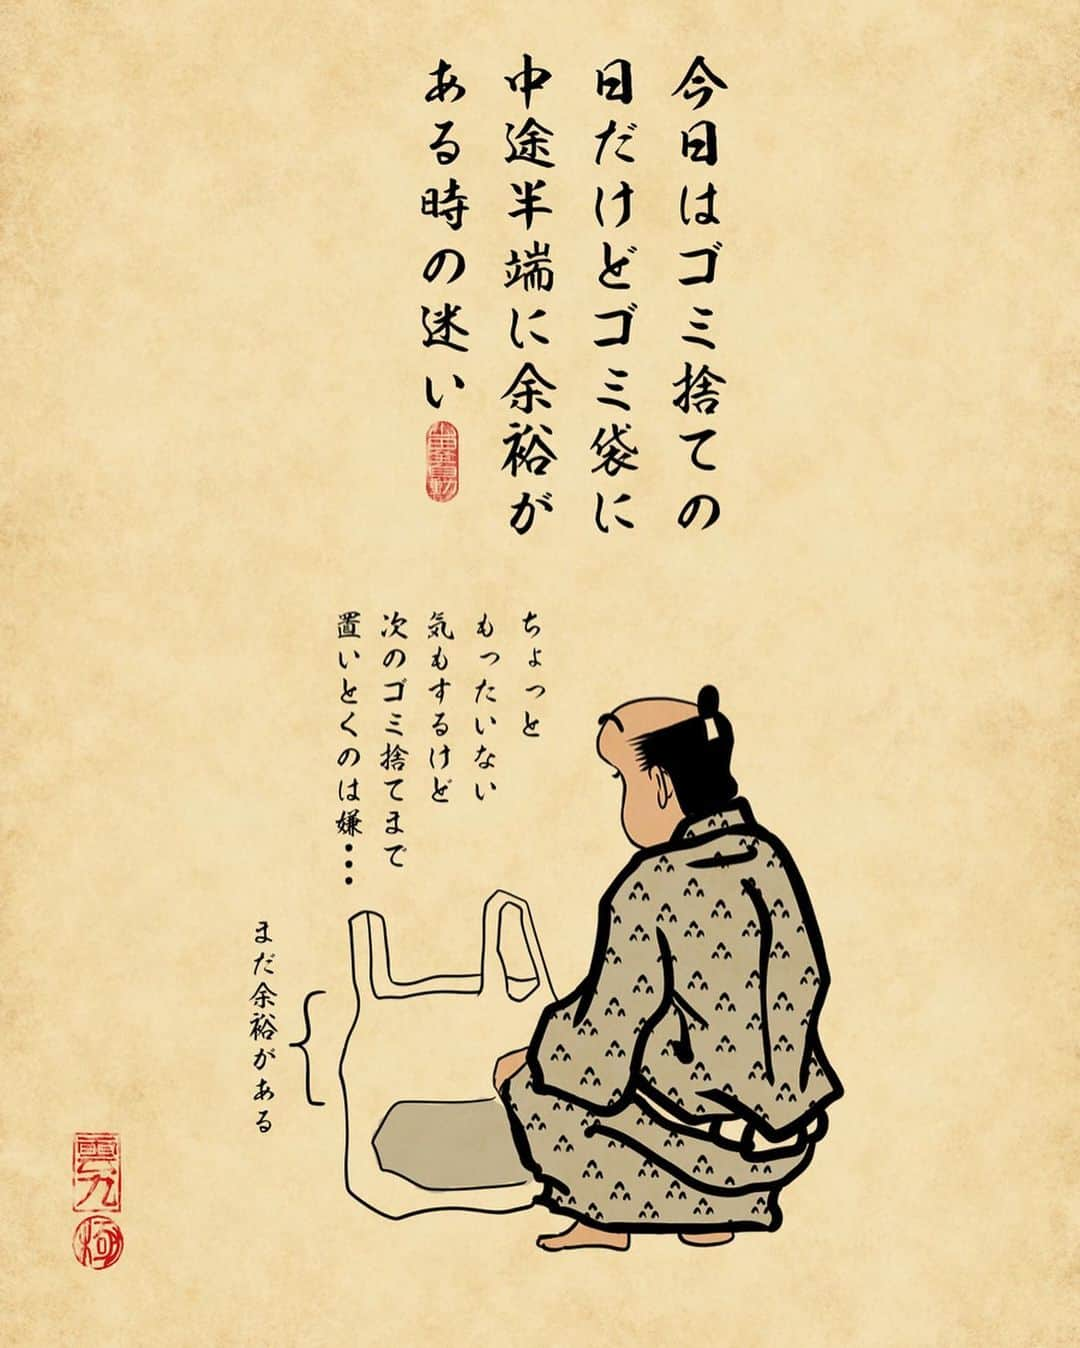 今日はゴミ捨ての
日だけどゴミ袋に
中途半端に余裕が
ある時の迷い
ちょっと
もったいない
気もするけど
次のゴミ捨てまで
置いとくのは嫌・・・
まだ余裕がある